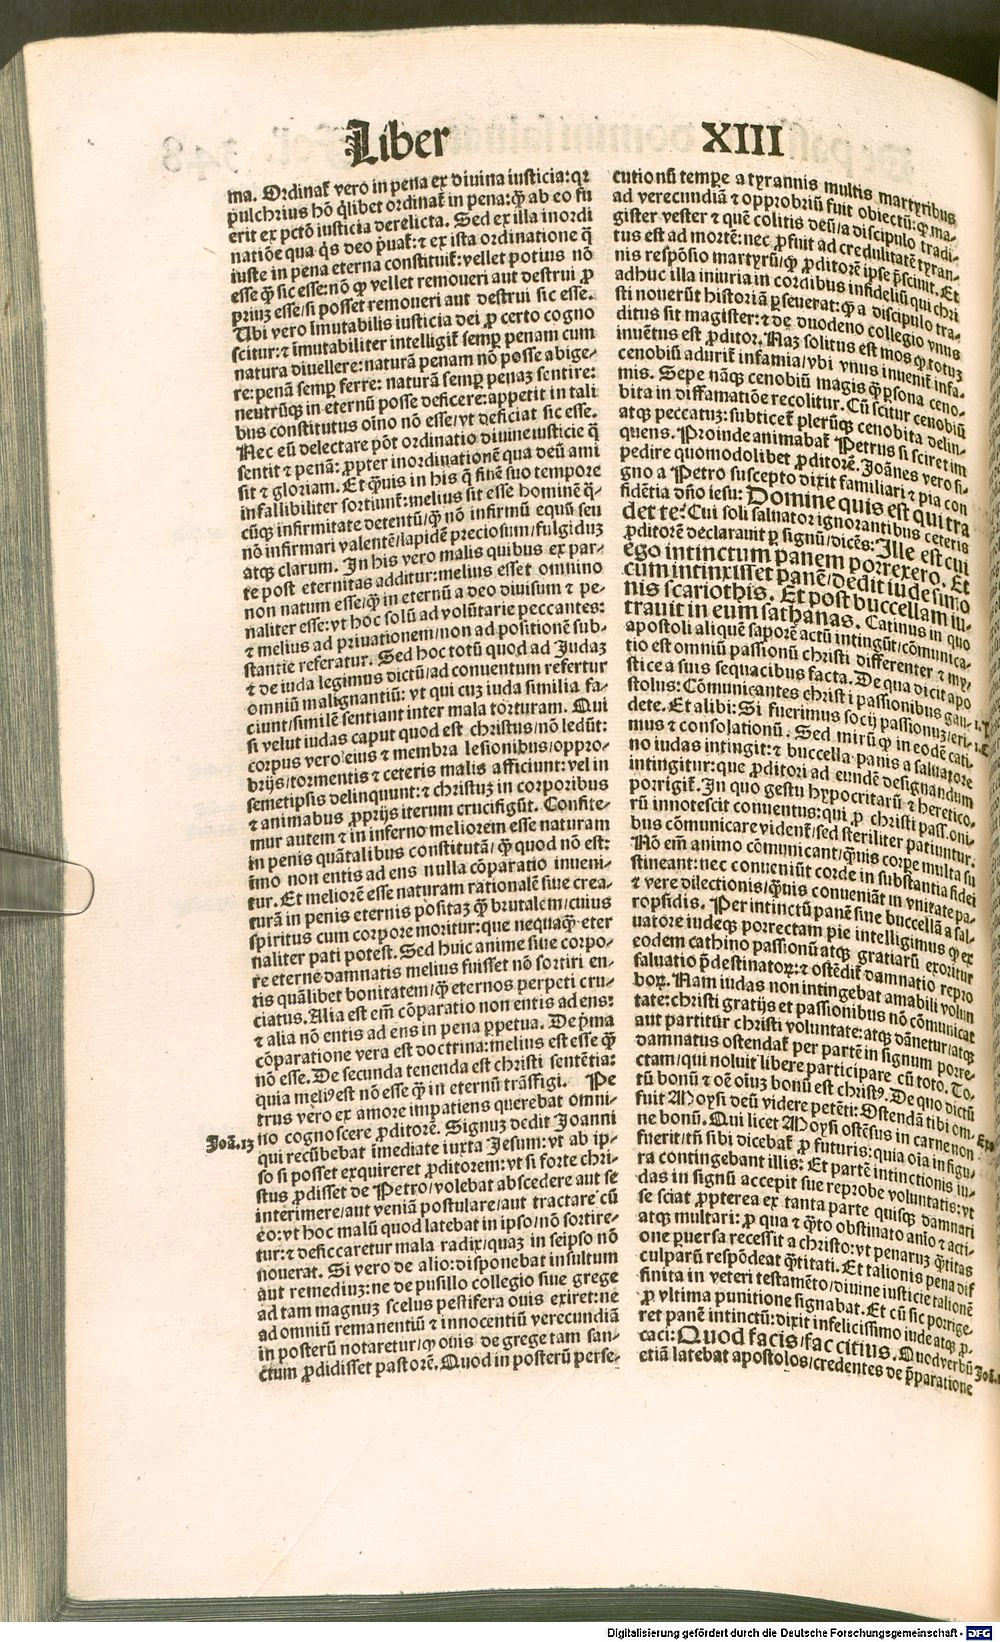 Liber XIII
ma. Ordinat̄ vero in pena ex diuina iusticia: qꝛ
pulchrius hō q̇libet ordinat̄ in pena: q̄ ab eo fu
erit ex pctō iusticia derelicta. Sed ex illa inordi
natiōe qua q̇s deo p̲uat̄: ⁊ ex ista ordinatione q̄
iuste in pena eterna constituit̄: vellet potius nō
esse q̄ sic esse: nō ꝙ vellet remoueri aut destrui ꝓ
prius esse/si posset remoueri aut destrui sic esse.
Ubi vero īmutabilis iusticia dei ꝓ certo cogno
scitur: ⁊ īmutabiliter intelligit̄ semꝑ penam cum
natura diuellere: naturā penam nō posse abige-
re: penā semꝑ ferre: naturā semꝑ penaꝫ sentire:
neutrūqꝫ in eternū posse deficere: appetit in tali
bus constitutus oīno nō esse/vt deficiat sic esse.
Nec eū delectare pōt ordinatio diuine iusticie q̄
sentit ⁊ penā: ꝓpter inordinationē qua deū ami
sit ⁊ gloriam. Et q̄uis in his q̄ finē suo tempore
infallibiliter sortiunt̄: melius sit esse hominē q̄-
cūqꝫ infirmitate detentū/q̄ nō infirmū equū seu
nō infirmari valentē/lapidē preciosum/fulgiduꝫ
atqꝫ clarum. In his vero malis quibus ex par-
te post eternitas additur: melius esset omnino
non natum esse/q̄ in eternū a deo diuisum ⁊ pe-
naliter esse: vt hoc solū ad volūtarie peccantes:
⁊ melius ad priuationem/non ad positionē sub-
stantie referatur. Sed hoc totū quod ad Judaꝫ
⁊ de iuda legimus dictū/ad conuentum refertur
omniū malignantiū: vt qui cuꝫ iuda similia fa-
ciunt/similē sentiant inter mala torturam. Qui
si velut iudas caput quod est christus/nō ledūt:
corpus vero eius ⁊ membra lesionibus/oppro-
brijs/tormentis ⁊ ceteris malis afficiunt: vel in
semetipsis delinquunt: ⁊ christuꝫ in corporibus
⁊ animabus ꝓprijs iterum crucifigūt. Confite-
mur autem ⁊ in inferno meliorem esse naturam
in penis quātalibus constitutā/q̄ quod nō est:
īmo non entis ad ens nulla cōparatio inueni-
tur. Et meliorē esse naturam rationalē siue crea-
turā in penis eternis positaꝫ q̄ brutalem/cuius
spiritus cum corpore moritur: que nequaq̄ eter
naliter pati potest. Sed huic anime siue corpo-
re eterne damnatis melius fuisset nō sortiri en-
tis quālibet bonitatem/q̄ eternos perpeti cru-
ciatus. Alia est em̄ cōparatio non entis ad ens:
⁊ alia nō entis ad ens in pena ꝑpetua. De p̲ma
cōparatione vera est doctrina: melius est esse q̄
nō esse. De secunda tenenda est christi sentētia:
quia meliꝰ est nō esse q̄ in eternū trāsfigi. Pe
trus vero ex amore impatiens querebat omni-
no cognoscere ꝓditorē. Signuꝫ dedit Joanni
Joā. 13
qui recūbebat īmediate iuxta Jesum: vt ab ip-
so si posset exquireret ꝓditorem: vt si forte chri-
stus ꝓdisset de Petro/volebat abscedere aut se
interimere/aut veniā postulare/aut tractare cū
eo: vt hoc malū quod latebat in ipso/nō sortire-
tur: ⁊ deficcaretur mala radix/quaꝫ in seipso nō
nouerat. Si vero de alio: disponebat insultum
aut remediuꝫ: ne de pusillo collegio siue grege
ad tam magnuꝫ scelus pestifera ouis exiret: ne
ad omniū remanentiū ⁊ innocentiū verecundiā
in posterū notaretur/ꝙ ouis de grege tam san-
ctum ꝓdidisset pastorē. Quod in posterū perse-
cutionū tempe a tyrannis multis martyribus
ad verecundiā ⁊ opprobriū fuit obiectū: ꝙ ma-
gister vester ⁊ quē colitis deū/a discipulo tradi-
tus est ad mortē: nec ꝓfuit ad credulitatē tyran-
nis respōsio martyrū/ꝙ ꝓditorē ipse p̄sciuit. Et
adhuc illa iniuria in cordibus infideliū qui chri
sti nouerūt historiā ꝑseuerat: ꝙ a discipulo tra-
ditus sit magister: ⁊ de duodeno collegio vnus
inuētus est ꝓditor. Naꝫ solitus est mos ꝙ totuꝫ
cenobiū adurit̄ infamia/vbi vnus inuenit̄ infa-
mis. Sepe nāqꝫ cenobiū magis q̄ ꝑsona ceno-
bita in diffamatiōe recolitur. Cū scitur cenobiū
atqꝫ peccatuꝫ: subticet̄ plerūqꝫ cenobita delin-
quens. Proinde animabat̄ Petrus si sciret im
pedire quomodolibet ꝓditorē. Joānes vero si-
gno a Petro suscepto dixit familiari ⁊ pia con
fidētia dn̄o iesu: Domine quis est qui tra
det te? Cui soli saluator ignorantibus ceteris
ꝓditorē declarauit ꝑ signū/dicēs: Ille est cui
ego intinctum panem porrexero. Et
cum intinxisset panē/dedit iude simo
nis scariothis. Et post buccellam in-
trauit in eum sathanas. Catinus in quo
apostoli aliquē saporē actū intingūt/cōmunica-
tio est omniū passionū christi differenter ⁊ my-
stice a suis sequacibus facta. De qua dicit apo
stolus: Cōmunicantes christi passionibus gau-
dete. Et alibi: Si fuerimus socij passionuꝫ/eri-
mus ⁊ consolationū. Sed mirū ꝙ in eodē cati-
no iudas intingit: ⁊ buccella panis a saluatore
intingitur: que ꝓditori ad eundē designandum
porrigit̄. In quo gestu hypocritarū ⁊ heretico-
rū innotescit conuentus: qui ꝓ christi passioni-
bus cōmunicare vident̄/sed steriliter patiuntur.
Nō em̄ animo cōmunicant/q̄uis corpe multa su
stineant: nec conueniūt corde in substantia fidei
⁊ vere dilectionis/q̄uis conueniāt in vnitate pa-
ropsidis. Per intinctū panē siue buccellā a sal-
uatore iudeqꝫ porrectam pie intelligimus ꝙ ex
eodem cathino passionū atqꝫ gratiarū exoritur
saluatio p̄destinatoꝝ: ⁊ ostēdit̄ damnatio repro
boꝝ. Nam iudas non intingebat amabili volun
tate: christi gratijs et passionibus nō cōmunicat
aut partitur christi voluntate: atqꝫ dānetur/atqꝫ
damnatus ostendat̄ per partē in signum porre-
ctam/qui noluit libere participare cū toto. To-
tū bonū ⁊ oē oiuꝫ bonū est christꝰ. De quo dictū
fuit Moysi deū videre petēti: Ostendā tibi om-
ne bonū. Qui licet Moysi ostēsus in carne non
fuerit/tn̄ sibi dicebat̄ ꝓ futuris: quia oīa in figu-
ra contingebant illis: Et partē intinctionis iu-
das in signū accepit sue reprobe voluntatis: vt
se sciat ꝓpterea ex tanta parte quisqꝫ damnari
atqꝫ multari: ꝓ qua ⁊ q̄to obstinato aīo ⁊ acti-
one ꝑuersa recessit a christo: vt penaruꝫ q̄titas
culparū respōdeat q̄titati. Et talionis pena dif
finita in veteri testamēto/diuine iusticie talionē
ꝓ vltima punitione signabat. Et cū sic porrige-
ret panē intinctū: dixit infelicissimo iude atqꝫ ꝓ-
caci: Quod facis/fac citius. Quod verbū
etiā latebat apostolos/credentes de p̄paratione